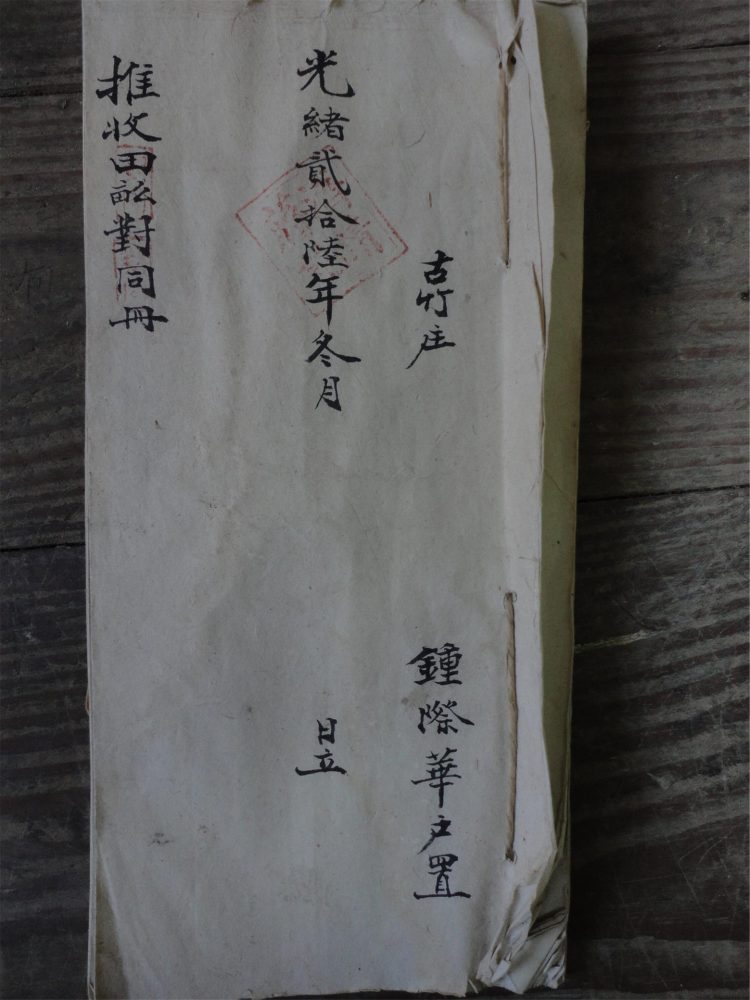 古竹庄 鍾際華户置
光緒貳拾陸年冬月 日立
推收田畝對同冊